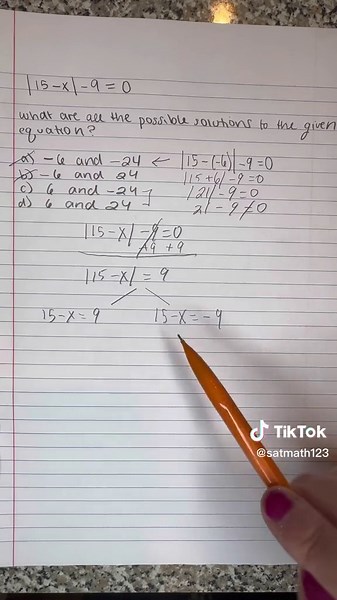 |15-x|-9=0
what are all the possible solutions to the given
equation?
a) -6 and -24 ← |15-(-6)|-9=0
b) -6 and 24 |15+6|-9=0
c) 6 and -24 |21|-9=0
d) 6 and 24 21-9≠0
|15-x|-9=0
+9 +9
|15-x| = 9
15-x=9 15-x=-9
TikTok
@satmath123